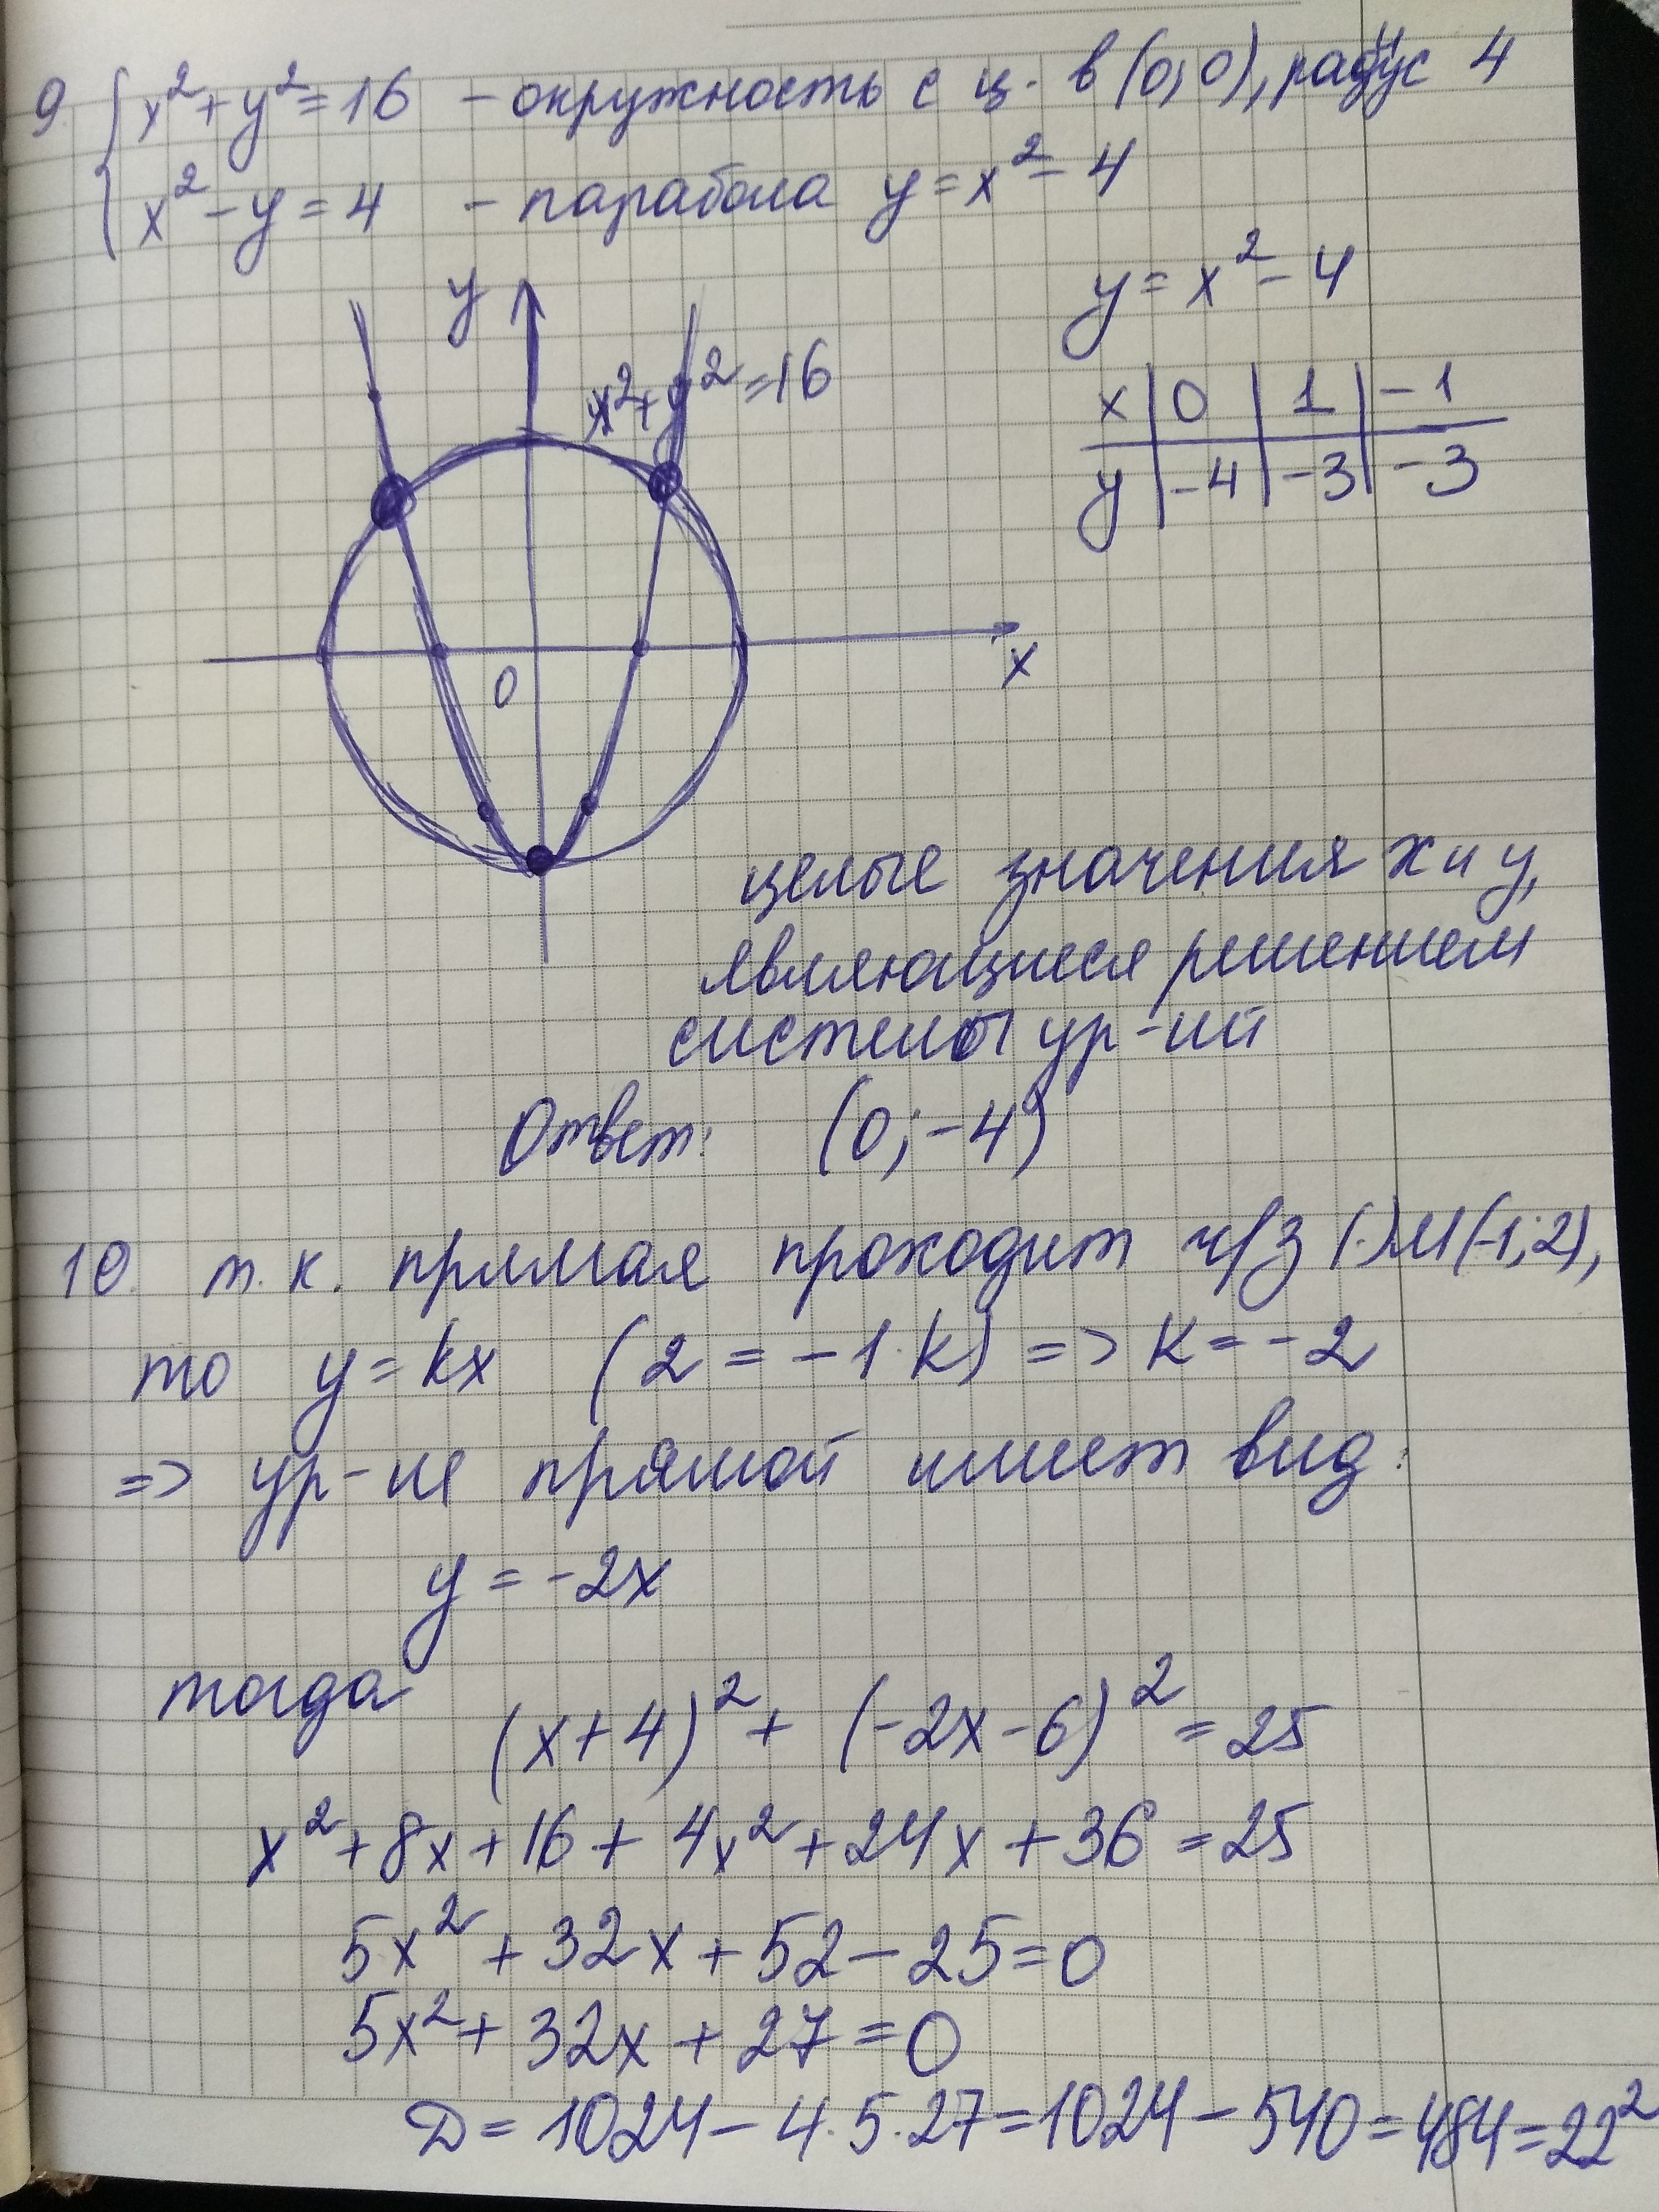 9. { x² + y² = 16 - окружность с ц. в (0; 0), радиус 4
x² - y = 4 - парабола y = x² - 4
y = x² - 4
y
x² + y² = 16
x | 0 | 1 | -1
y | -4 | -3 | -3
0
x
целые значения x и y,
являющиеся решением
системы ур-ий
Ответ: (0; -4)
10. т. к. прямая проходит ч/з (·) M (-1; 2),
то y = kx (2 = -1·k) => k = -2
=> ур-ие прямой имеет вид:
y = -2x
тогда
(x + 4)² + (-2x - 6)² = 25
x² + 8x + 16 + 4x² + 24x + 36 = 25
5x² + 32x + 52 - 25 = 0
5x² + 32x + 27 = 0
Д = 1024 - 4·5·27 = 1024 - 540 = 484 = 22²